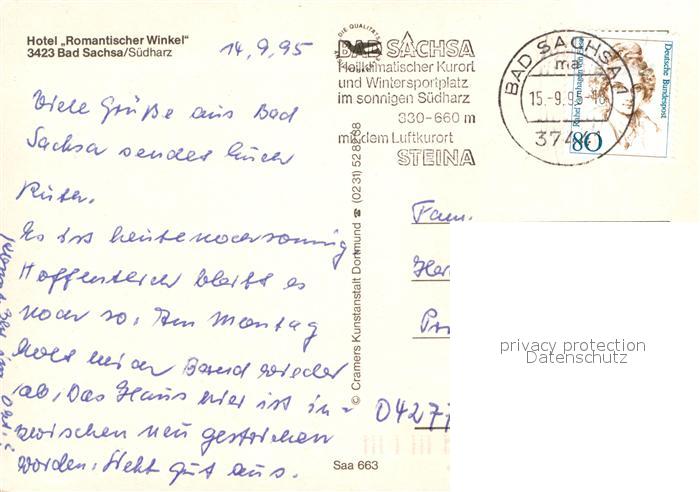 Hotel „Romantischer Winkel"
3423 Bad Sachsa/Südharz
14.9.95
Viele Grüße aus Bad
Sachsa sendet Euch
Ruth.
Es ist heute noch sonnig
Hoffentlich bleibt es
noch so. Am Montag
holt mich Bernd wieder
ab. Das Haus hier ist in-
zwischen neu gestrichen
worden. Sieht gut aus.
© Cramers Kunstanstalt Dortmund ☎ (0231) 528268
BAD SACHSA
Heilklimatischer Kurort
und Wintersportplatz
im sonnigen Südharz
330-660 m
mit dem Luftkurort
STEINA
BAD SACHSA 1
ma
15.-9.95-16
3744
Deutsche Bundespost
80
Fam.
Her
0427
privacy protection
Datenschutz
Saa 663